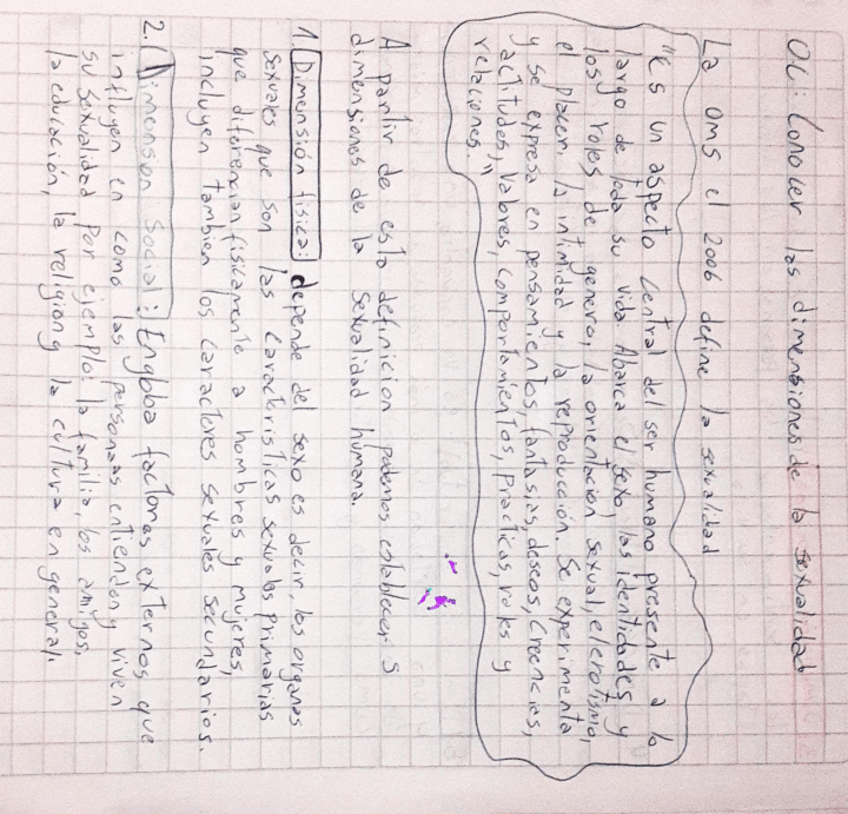 OC: Conocer las dimensiones de la sexualidad
La OMS el 2006 define la sexualidad
"Es un aspecto central del ser humano presente a lo
largo de toda su vida. Abarca el sexo, las identidades y
los roles de genero, la orientacion sexual, el erotismo,
el placer, la intimidad y la reproducción. Se experimenta
y se expresa en pensamientos, fantasias, deseos, creencias,
actitudes, valores, comportamientos, practicas, roles y
relaciones."
A partir de esta definicion podemos establecer 5
dimensiones de la sexualidad humana.
1. Dimensión fisica: depende del sexo es decir, los organos
sexuales que son las caracteristicas sexuales primarias
que diferencian fisicamente a hombres y mujeres,
incluyen tambien los caracteres sexuales secundarios.
2. Dimension Social: Engloba factores externos que
influyen en como las personas entienden y viven
su sexualidad por ejemplo: la familia, los amigos,
la educación, la religion y la cultura en general.